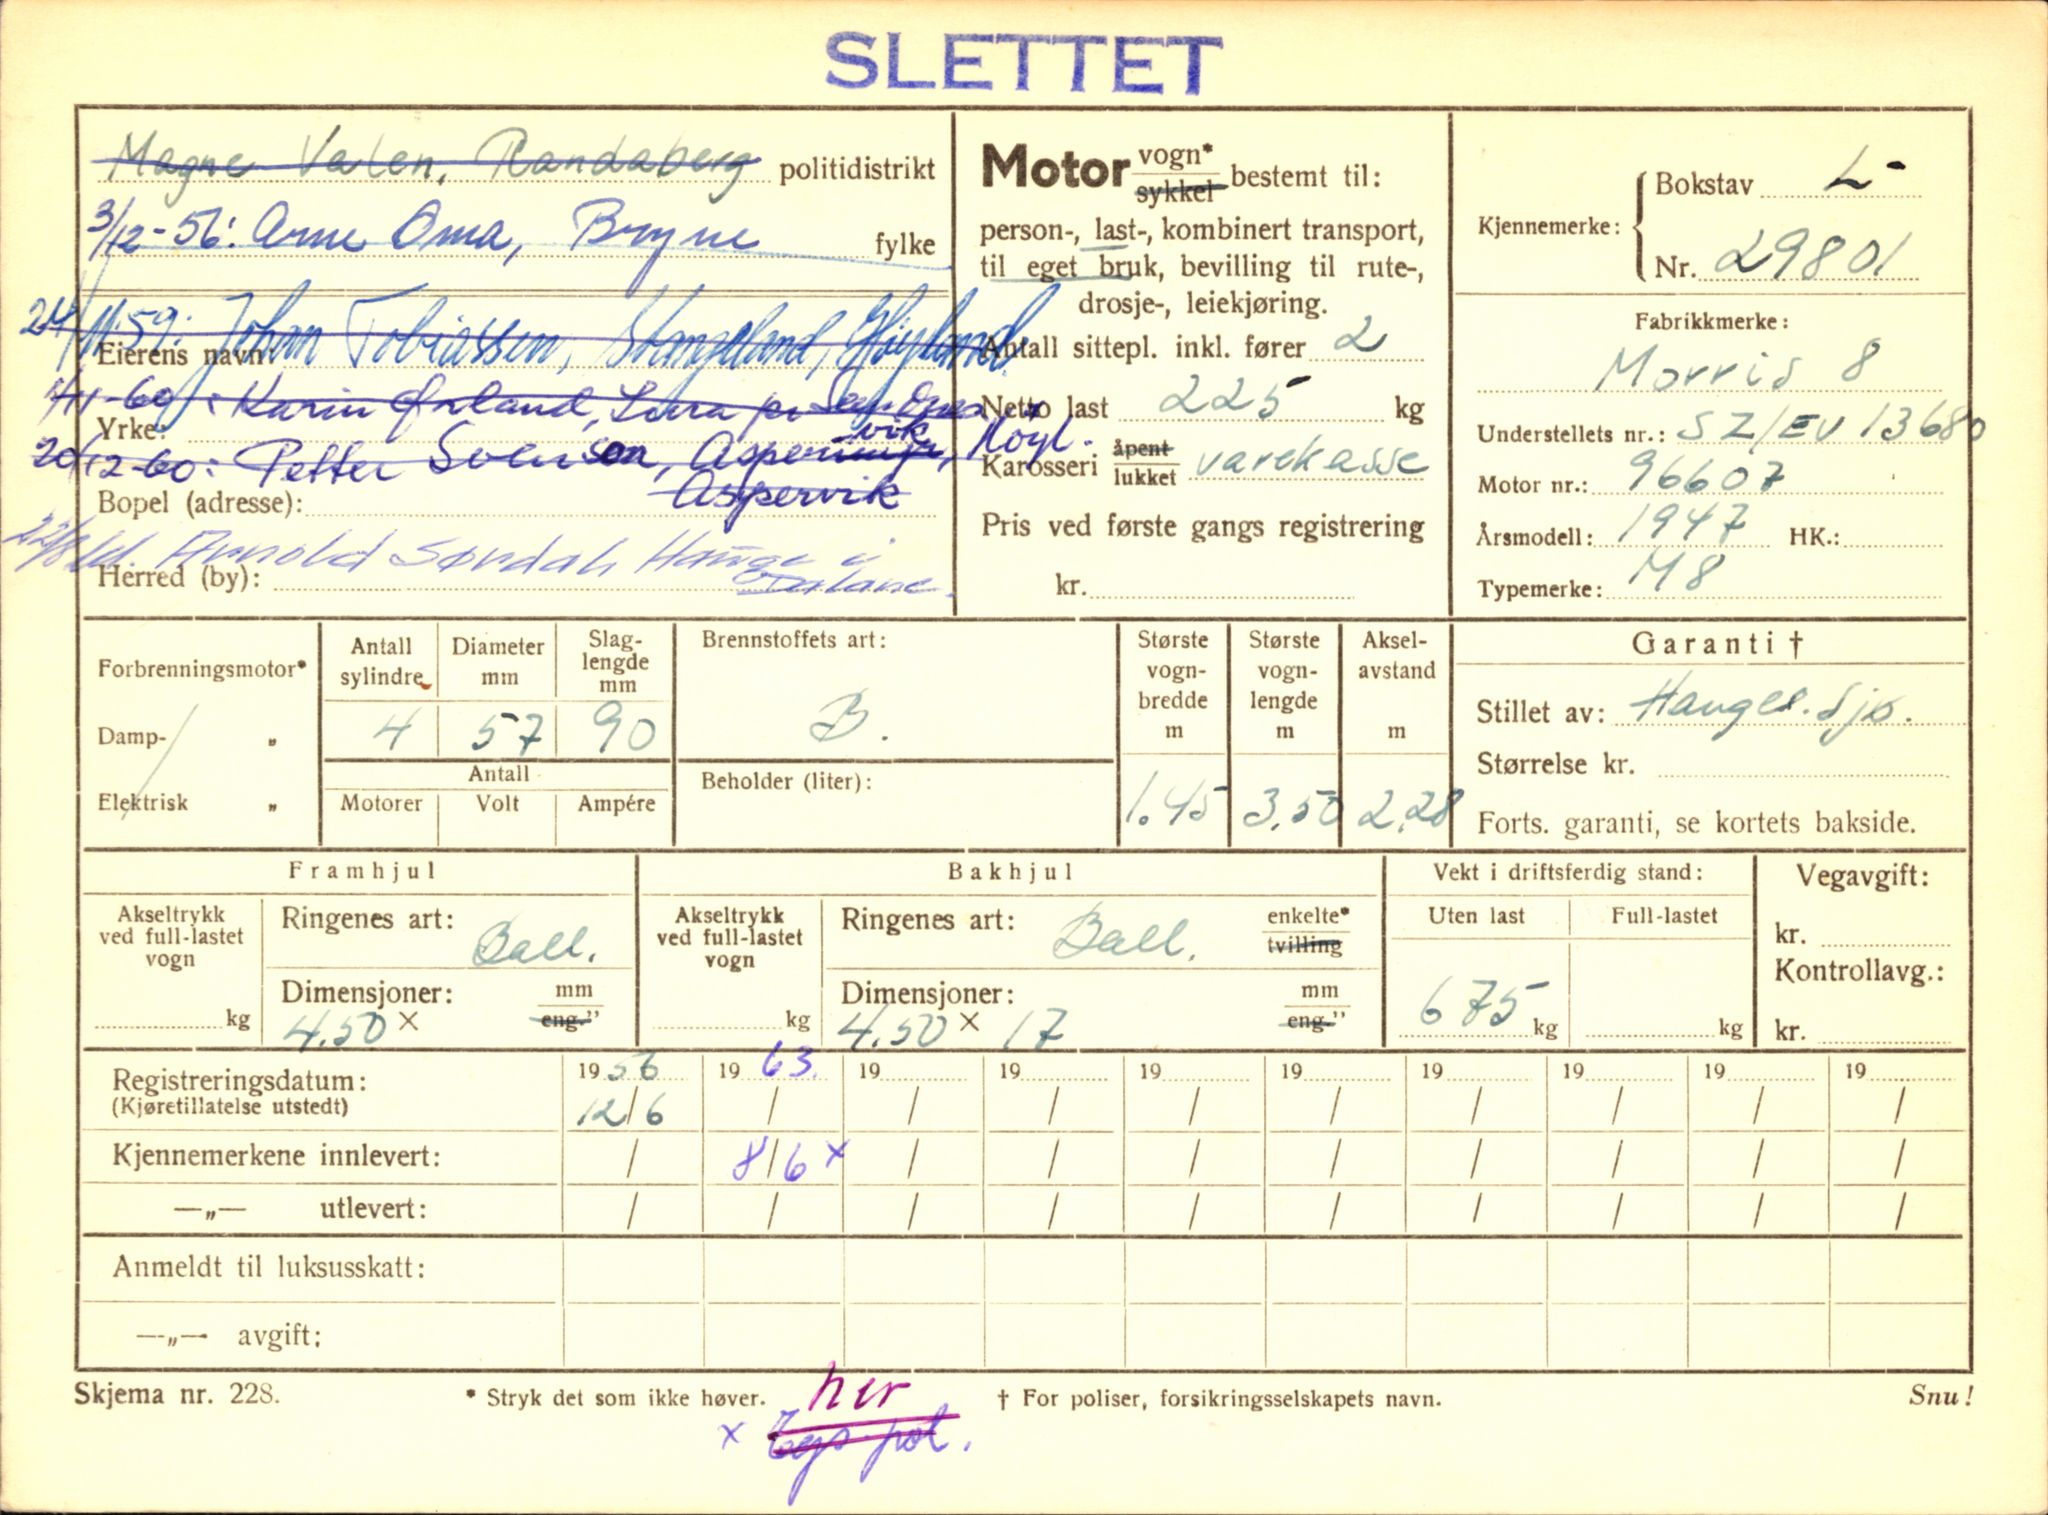 SLETTET
Magne Valen, Randaberg politidistrikt
3/12-56: Arne Oma, Bryne fylke
24/11-59: Johan Tobiassen, Stangeland, Høyland
Eierens navn:
1/11-60: Karin Ørland, Lura pr
Yrke:
20/12-60: Petter Svenson, Høyl.
Aspervik
Bopel (adresse):
22/8 Arnold Søndal, Hauge i Dalane.
Herred (by):
Motor vogn* sykkel bestemt til:
person-, last-, kombinert transport,
til eget bruk, bevilling til rute-,
drosje-, leiekjøring.
Antall sittepl. inkl. fører 2
Netto last 225 kg
Karosseri åpent lukket varekasse
Pris ved første gangs registrering
kr.
Kjennemerke: Bokstav L-
Nr. 29801
Fabrikkmerke:
Morris 8
Understellets nr.: SZ/EV 13680
Motor nr.: 96607
Årsmodell: 1947 HK.:
Typemerke: M8
Forbrenningsmotor*
Damp- "
Elektrisk "
Antall sylindre
Diameter mm
Slag-lengde mm
4 57 90
Antall
Motorer Volt Ampére
Brennstoffets art:
B.
Beholder (liter):
Største vogn-bredde m
1.45
Største vogn-lengde m
3,50
Aksel-avstand m
2,28
Garanti †
Stillet av: Hauges. Sjø.
Størrelse kr.
Forts. garanti, se kortets bakside.
Framhjul
Akseltrykk ved full-lastet vogn
kg
Ringenes art: Ball.
Dimensjoner: mm eng."
4.50 ×
Bakhjul
Akseltrykk ved full-lastet vogn
kg
Ringenes art: Ball. enkelte* tvilling
Dimensjoner: mm eng."
4.50 × 17
Vekt i driftsferdig stand:
Uten last Full-lastet
675 kg kg
Vegavgift:
kr.
Kontrollavg.:
kr.
Registreringsdatum: 19 56 19 63. 19 19 19 19 19 19 19 19
(Kjøretillatelse utstedt) 12/6 / / / / / / / / /
Kjennemerkene innlevert: / 8/6 x / / / / / / / /
—„— utlevert: / / / / / / / / / /
Anmeldt til luksusskatt:
—„— avgift:
Skjema nr. 228. * Stryk det som ikke høver. her † For poliser, forsikringsselskapets navn. Snu!
x pol.